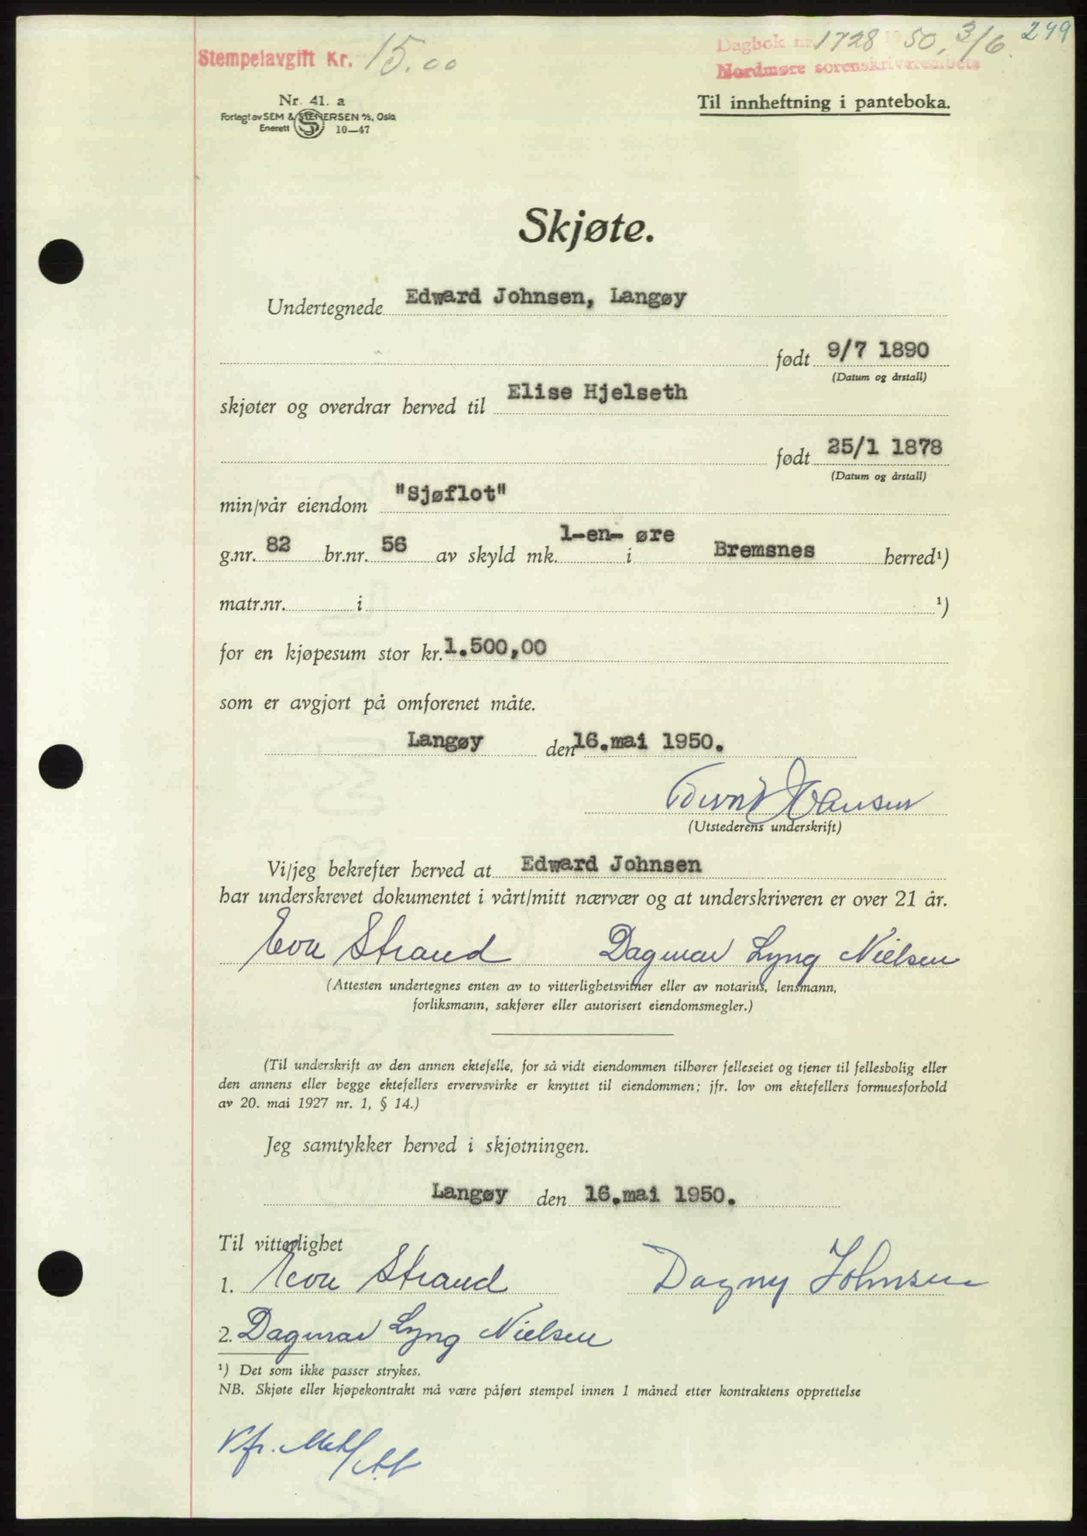 249
Stempelavgift Kr. 15.00
Dagbok nr. 1728 1950, 3/6.
Nordmøre sorenskriverembete
Nr. 41. a
Forlegt av SEM & STENERSEN A/S, Oslo
Enerett 10—47
Til innheftning i panteboka.
Skjøte.
Undertegnede Edward Johnsen, Langøy
født 9/7 1890
(Datum og årstall)
skjøter og overdrar herved til Elise Hjelseth
født 25/1 1878
(Datum og årstall)
min/vår eiendom "Sjøflot"
g.nr. 82 br.nr. 56 av skyld mk. 1-en- øre i Bremsnes herred¹)
matr.nr. i ¹)
for en kjøpesum stor kr. 1.500,00
som er avgjort på omforenet måte.
Langøy den 16.mai 1950.
(Utstederens underskrift)
Vi/jeg bekrefter herved at Edward Johnsen
har underskrevet dokumentet i vårt/mitt nærvær og at underskriveren er over 21 år.
Strand Dagmar Lyng Nielsen
(Attesten undertegnes enten av to vitterlighetsvitner eller av notarius, lensmann,
forliksmann, sakfører eller autorisert eiendomsmegler.)
(Til underskrift av den annen ektefelle, for så vidt eiendommen tilhører felleseiet og tjener til fellesbolig eller
den annens eller begge ektefellers ervervsvirke er knyttet til eiendommen; jfr. lov om ektefellers formuesforhold
av 20. mai 1927 nr. 1, § 14.)
Jeg samtykker herved i skjøtningen.
Langøy den 16.mai 1950.
Til vitterlighet
1. Strand Dagny Johnsen
2. Dagmar Lyng Nielsen
¹) Det som ikke passer strykes.
NB. Skjøte eller kjøpekontrakt må være påført stempel innen 1 måned etter kontraktens opprettelse